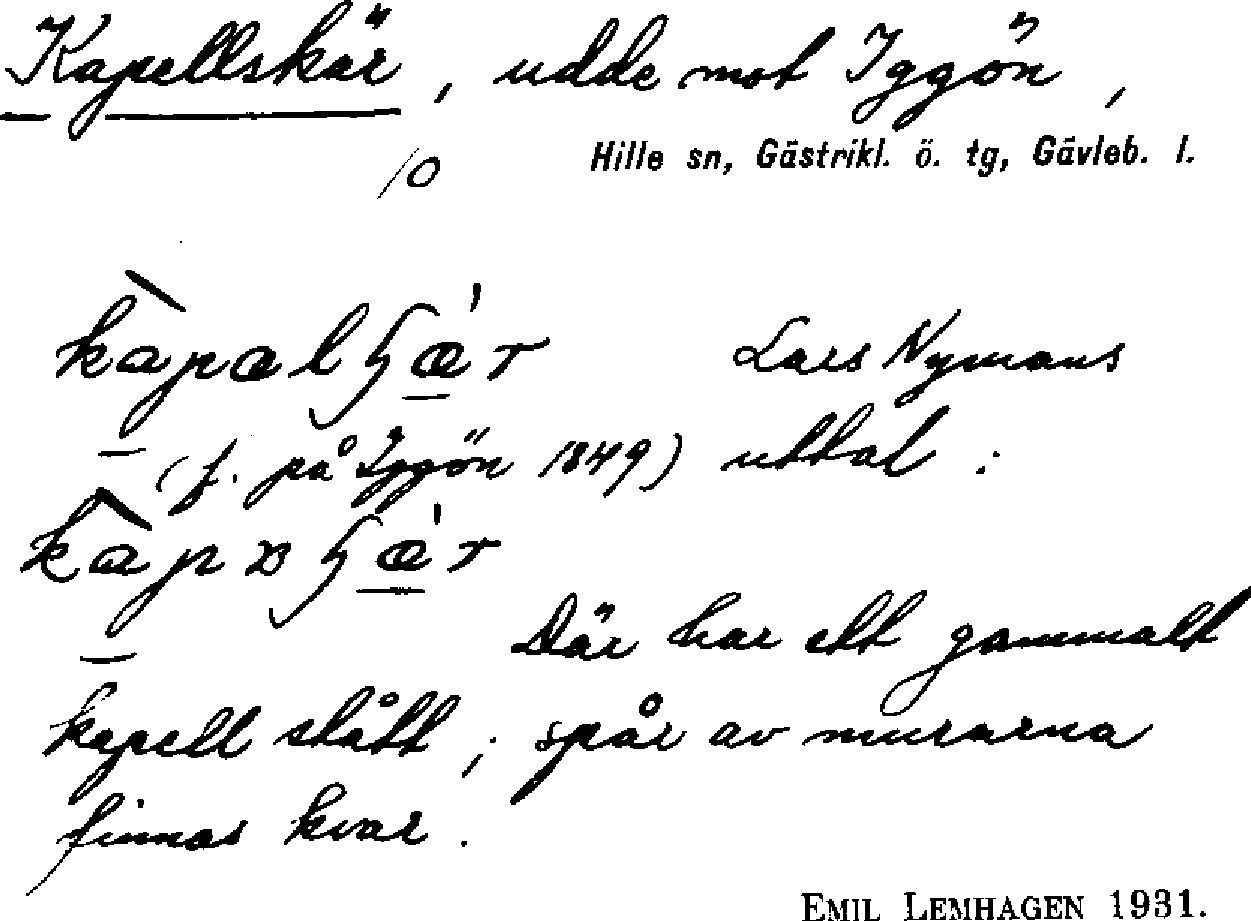 Kapellskär, udde mot Iggön,
10 Hille sn, Gästrikl. ö. tg, Gävleb. l.
Lars Nymans
(f. på Iggön 1849) uttal:
Där har ett gammalt
kapell stått; spår av murarna
finnas kvar.
EMIL LEMHAGEN 1931.